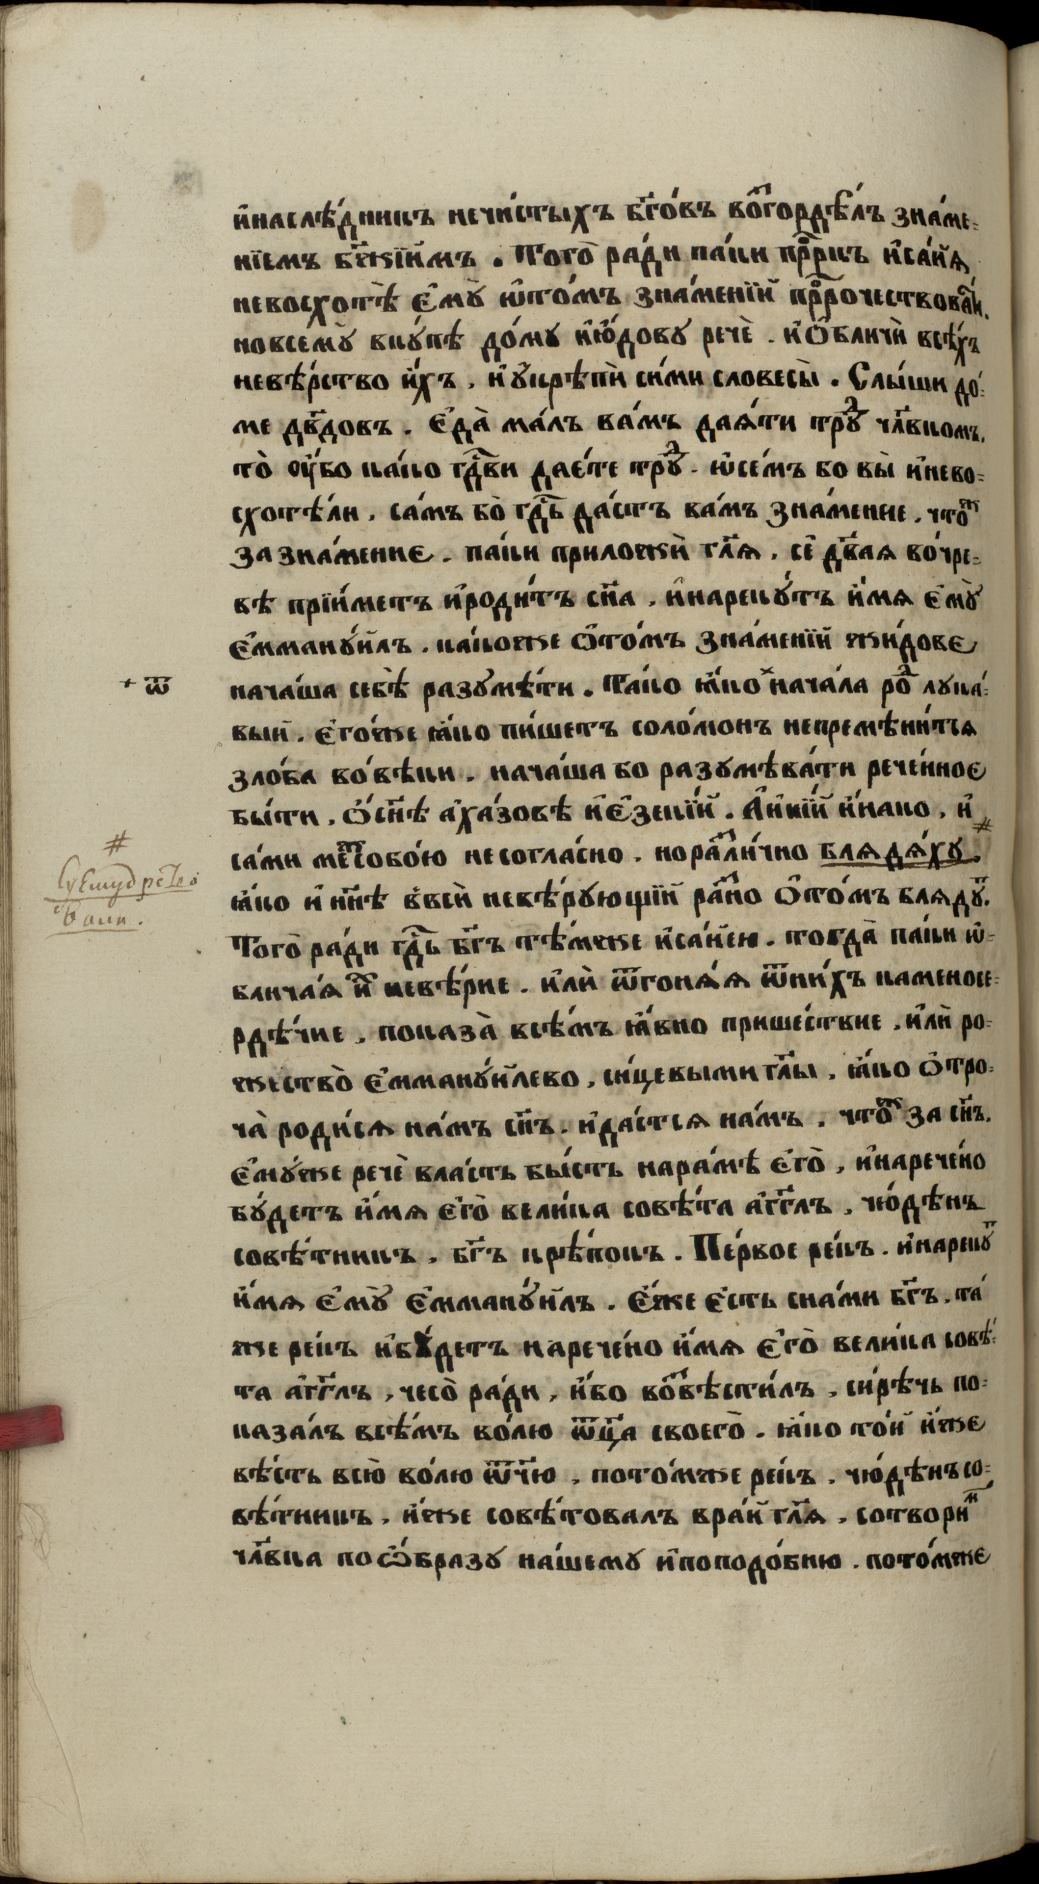 и҆наслѣ́дникъ нечи́стыхъ бг҃о́въ возгордѣ́лъ зна́ме-
нїемъ бж҃їимъ . Того̀ ра́ди па́ки прⷪ҇ркъ и҆са́їѧ
невосхотѣ̀ є҆мꙋ̀ ѡ҆то́мъ зна́менїи прⷪ҇рочествова́ти,
новсемꙋ̀ вкꙋ́пѣ до́мꙋ и҆ю́довꙋ речѐ . и҆ѡ҆бличѝ всѣ́хъ
невѣ́рство и҆́хъ , и҆ ᲂу҆крѣпѝ си́ми словесы̀ . Слы́ши до́-
ме дв҃довъ . є҆да̀ ма́лъ ва́мъ даѧ́ти трꙋⷣ чл҃вкомъ,
то̀ ᲂу҆́бо ка́ко гдⷭ҇ви дае́те трꙋⷣ . ѡ҆се́мъ бо вы̀ и҆нево-
схотѣ́ли , са́мъ бо̀ гдⷭ҇ь да́стъ ва́мъ зна́мение , чтоⷤ
за зна́мение . па́ки приложѝ гл҃ѧ , сѐ дв҃аѧ во́чре-
вѣ прїи́метъ и҆роди́тъ сн҃а , и҆нарекꙋ́тъ и҆́мѧ є҆мꙋ̀
є҆ммано́уилъ . ка́коже ѡ҆то́мъ зна́менїи жи́дове
нача́ша себѣ̀ разꙋмѣ́ти . Та́ко ꙗ҆́ко ⁺ нача́ла роⷣ лꙋка́-
+ ѿ
вый . є҆го́же ꙗ҆́ко пи́шетъ соломо́нъ непремѣни́тсѧ
зло́ба во́вѣки . нача́ша бо разꙋмѣва́ти рече́нное
бы́ти , ѡ҆сн҃ѣ а҆ха́зовѣ и҆є҆зекїи . А҆́нїи и҆́нако , и҆
са́ми меⷤсобо́ю несогла́сно . нора́зⷧ҇ично блѧдѧ́хꙋ . #
#
ꙗ҆́ко и҆ нн҃ѣ и҆всѝ невѣ́рꙋющїи ра́зно ѡ҆то́мъ блѧдꙋⷮ.
Того̀ ра́ди гдⷭ҇ь бг҃ъ тѣ́мже и҆са́иею . тогда̀ па́ки ѡ҆-
блича́ѧ и҆хъ невѣ́рие . и҆лѝ ѿгонѧ́ѧ ѿни́хъ каменосе-
рдѣ́чие , показа̀ всѣ́мъ ꙗ҆́вно прише́ствие , и҆лѝ ро-
жество̀ є҆ммано́уилево , си́цевыми гл҃ы , ꙗ҆́ко ѻ҆тро-
ча̀ роди́сѧ на́мъ сн҃ъ . и҆да́стсѧ на́мъ . чтоⷤ за сн҃ъ.
є҆мꙋ́же речѐ вла́сть бы́сть нара́мѣ є҆го̀ , и҆нарече́но
бꙋ́детъ и҆́мѧ є҆го̀ вели́ка совѣ́та а҆́гг҃лъ , чю́дѣнъ
совѣ́тникъ , бг҃ъ крѣ́покъ . Пе́рвое ре́къ . и҆нарекꙋⷮ
и҆́мѧ є҆мꙋ̀ є҆ммано́уилъ . є҆́же є҆́сть сна́ми бг҃ъ . та́
же ре́къ и҆бꙋ́детъ нарече́но и҆́мѧ є҆го̀ вели́ка совѣ́-
та а҆́гг҃лъ , чесо̀ ра́ди , и҆́бо возвѣсти́лъ , си́рѣчь по-
каза́лъ всѣ́мъ во́лю ѿц҃а своего̀ . ꙗ҆́ко то́й и҆́же
вѣ́сть всю̀ во́лю ѿч҃ю , пото́мже ре́къ . чю́дѣнъ со-
вѣ́тникъ , и҆́же совѣ́товалъ вра́и гл҃ѧ , сотвориⷨ
чл҃вка по ѡ҆́бразꙋ на́шемꙋ и҆поподо́бию . пото́мже